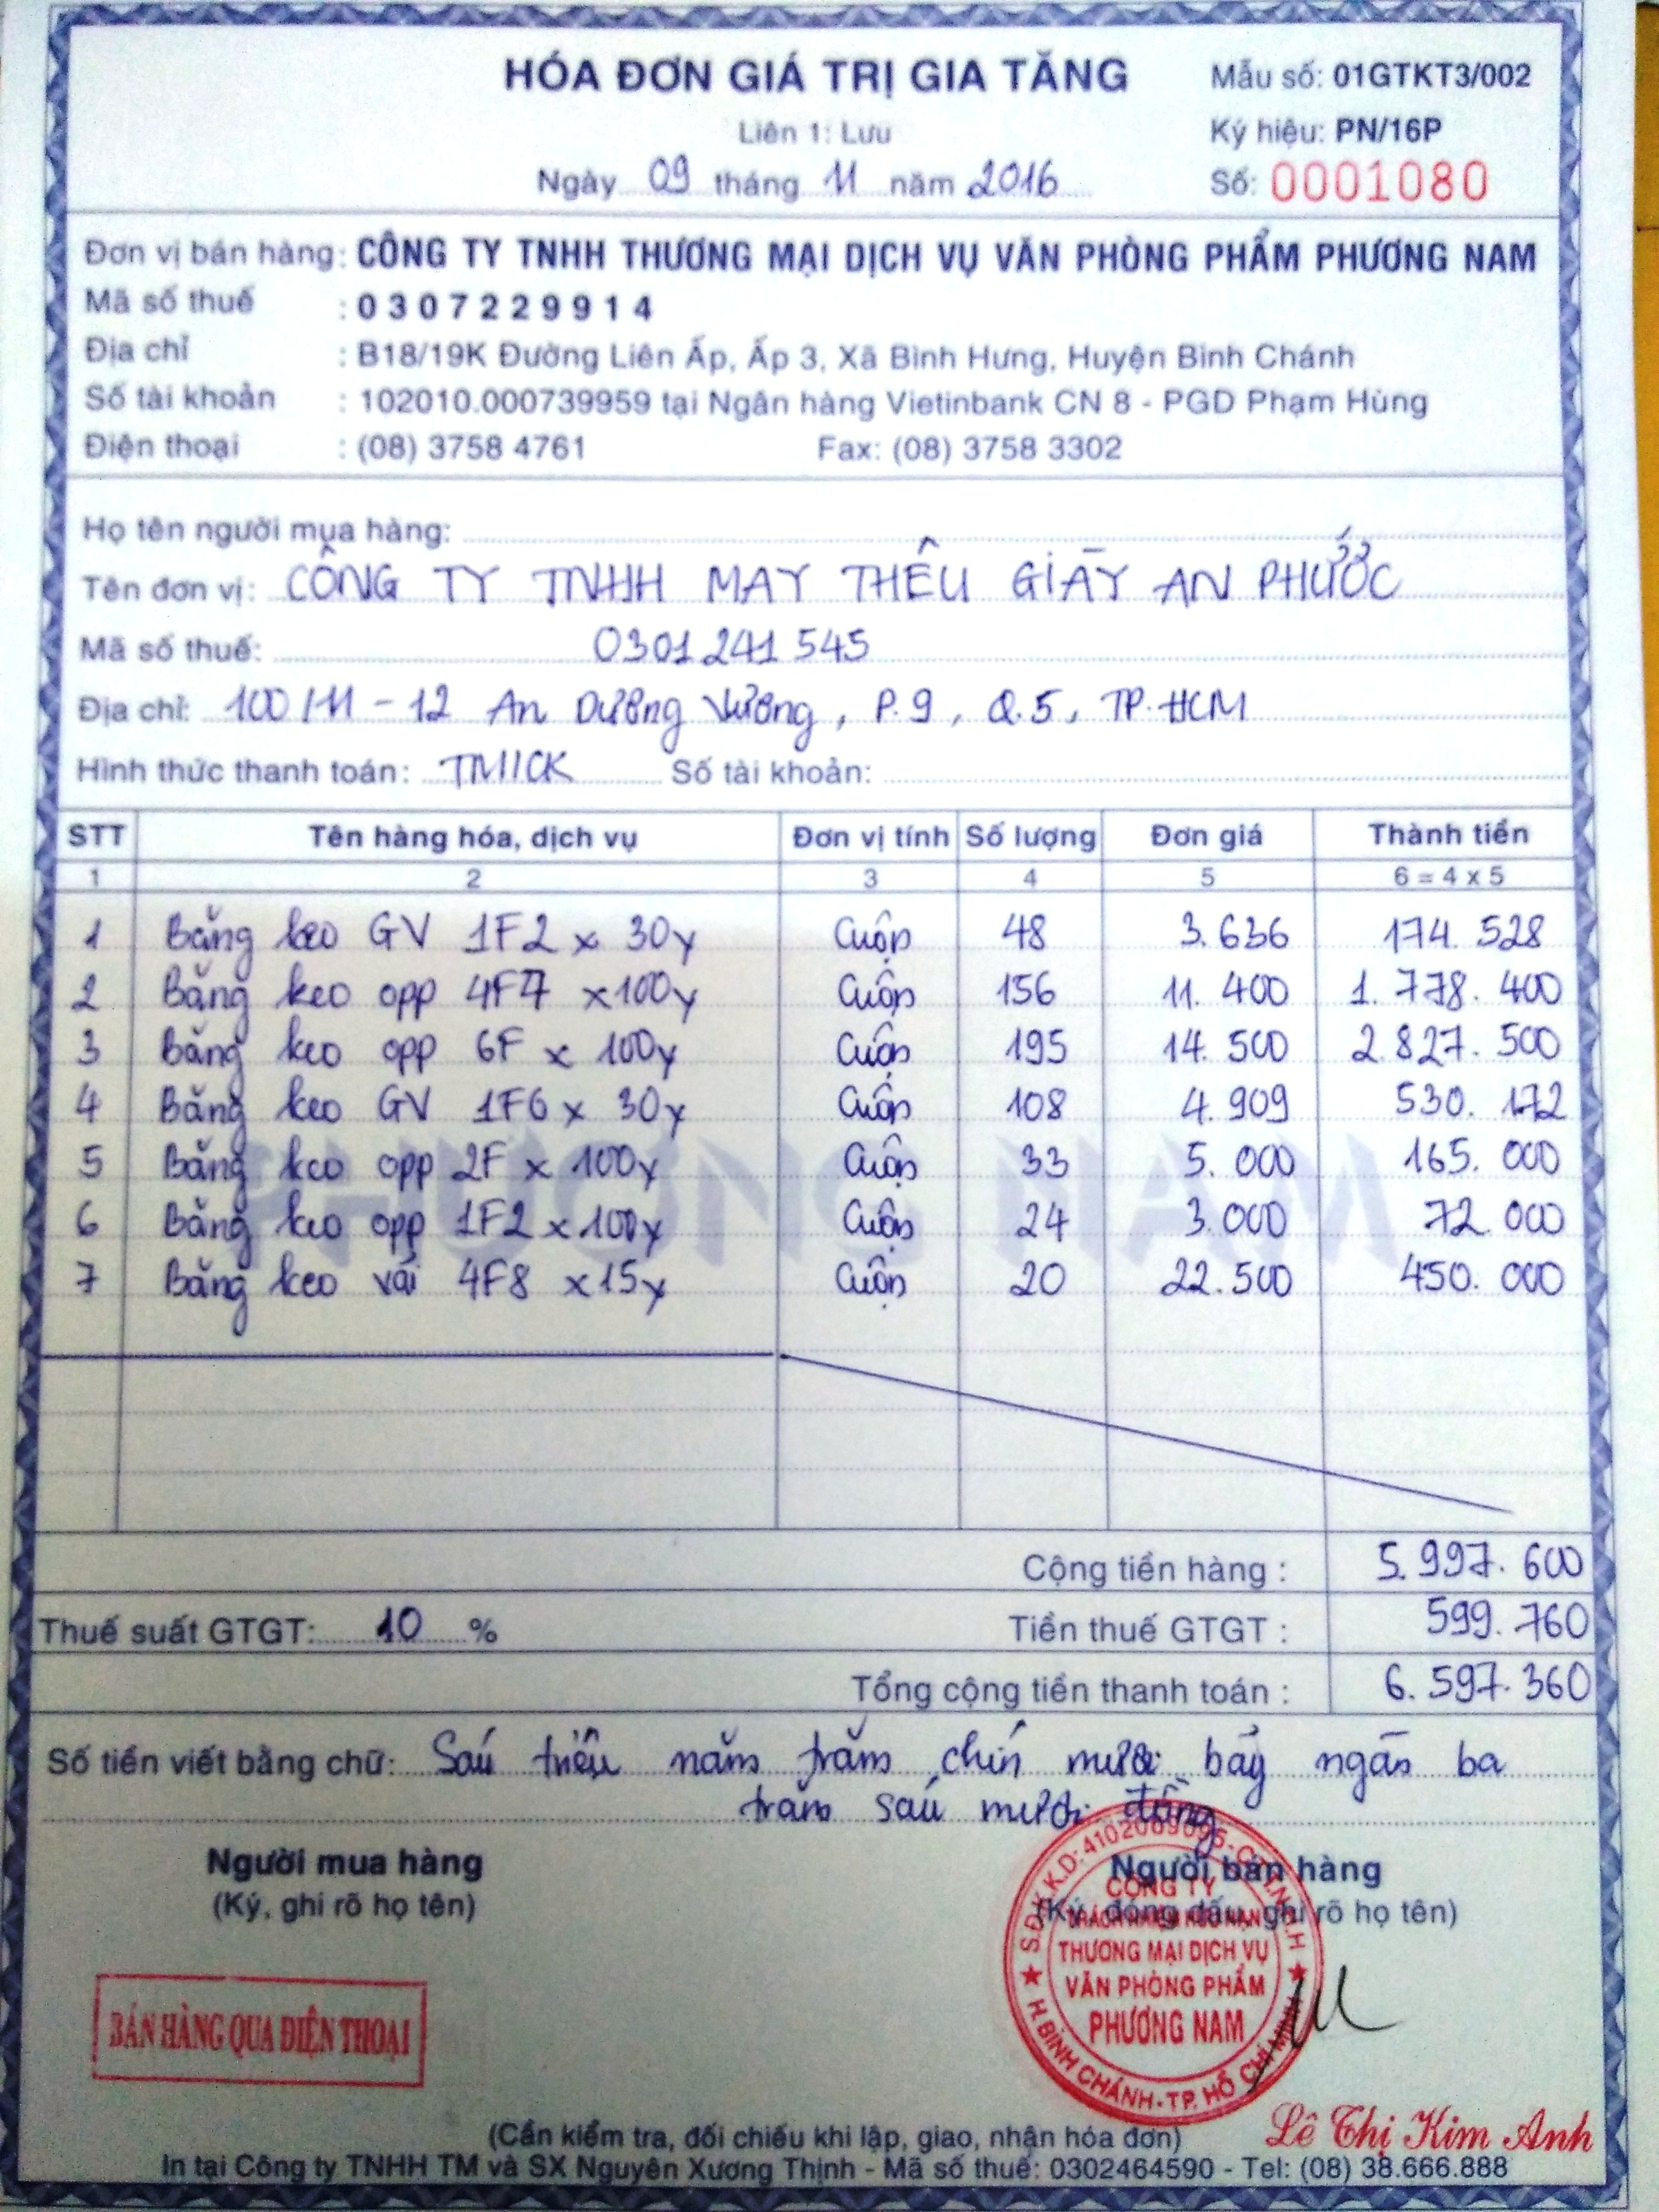 HÓA ĐƠN GIÁ TRỊ GIA TĂNG
Mẫu số: 01GTKT3/002
Liên 1: Lưu
Ký hiệu: PN/16P
Ngày 09 tháng 11 năm 2016
Số: 0001080
Đơn vị bán hàng: CÔNG TY TNHH THƯƠNG MẠI DỊCH VỤ VĂN PHÒNG PHẨM PHƯƠNG NAM
Mã số thuế : 0307229914
Địa chỉ : B18/19K Đường Liên Ấp, Ấp 3, Xã Bình Hưng, Huyện Bình Chánh
Số tài khoản : 102010.000739959 tại Ngân hàng Vietinbank CN 8 - PGD Phạm Hùng
Điện thoại : (08) 3758 4761 Fax: (08) 3758 3302
Họ tên người mua hàng:
Tên đơn vị: CÔNG TY TNHH MAY THÊU GIÀY AN PHƯỚC
Mã số thuế: 0301241545
Địa chỉ: 100/11-12 An Dương Vương, P.9, Q.5, TP.HCM
Hình thức thanh toán: TM/CK Số tài khoản:
STT Tên hàng hóa, dịch vụ Đơn vị tính Số lượng Đơn giá Thành tiền
1 2 3 4 5 6 = 4 x 5
1 Băng keo GV 1F2 x 30y Cuộn 48 3.636 174.528
2 Băng keo opp 4F7 x100y Cuộn 156 11.400 1.778.400
3 Băng keo opp 6F x 100y Cuộn 195 14.500 2.827.500
4 Băng keo GV 1F6 x 30y Cuộn 108 4.909 530.172
5 Băng keo opp 2F x 100y Cuộn 33 5.000 165.000
6 Băng keo opp 1F2 x 100y Cuộn 24 3.000 72.000
7 Băng keo vải 4F8 x15y Cuộn 20 22.500 450.000
PHƯƠNG NAM
Cộng tiền hàng : 5.997.600
Thuế suất GTGT: 10 % Tiền thuế GTGT : 599.760
Tổng cộng tiền thanh toán : 6.597.360
Số tiền viết bằng chữ: Sáu triệu năm trăm chín mươi bảy ngàn ba
trăm sáu mươi đồng
Người mua hàng
(Ký, ghi rõ họ tên)
Người bán hàng
(Ký, đóng dấu, ghi rõ họ tên)
BÁN HÀNG QUA ĐIỆN THOẠI
CÔNG TY
TRÁCH NHIỆM HỮU HẠN
THƯƠNG MẠI DỊCH VỤ
VĂN PHÒNG PHẨM
PHƯƠNG NAM
H. BÌNH CHÁNH - TP. HỒ CHÍ MINH
Lê Thị Kim Anh
(Cần kiểm tra, đối chiếu khi lập, giao, nhận hóa đơn)
In tại Công ty TNHH TM và SX Nguyên Xương Thịnh - Mã số thuế: 0302464590 - Tel: (08) 38.666.888